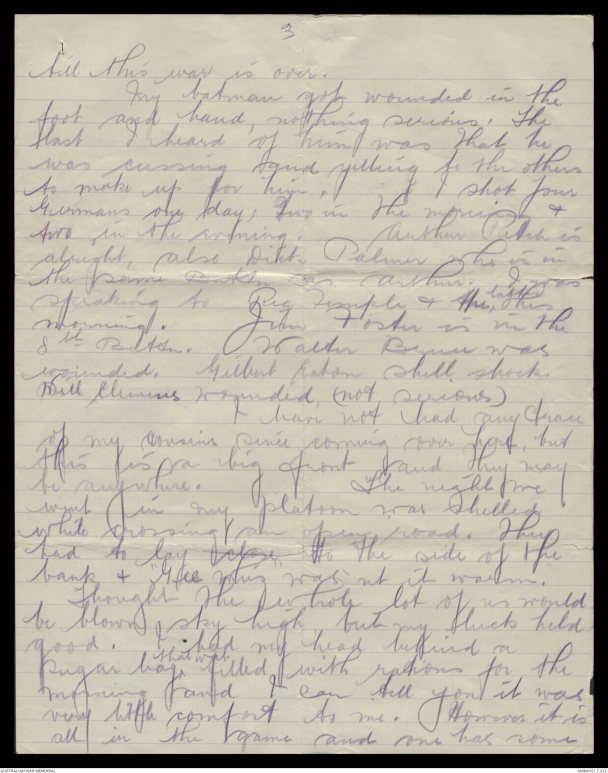 3
till this war is over.
My batman got wounded in the
foot and hand, nothing serious. The
last I heard of him was that he
was cussing and yelling to the others
to make up for him. I shot four
Germans one day, two in the morning &
two in the evening. Arthur Petch is
alright, also Dick Palmer who is in
the same Battn as Arthur. I was
speaking to Reg Temple & the latter this
morning. Jim Foster is in the
8th Battn. Walter was
wounded. Gilbert Eaton shell shock.
Will Clemens wounded, (not serious)
I have not had any trace
of my cousins since coming over here, but
this is a big front and they may
be anywhere. The night we
went in my platoon was shelled
while crossing an open road. They
had to lay close to the side of the
bank & Gee whiz wasnt it warm.
Thought the whole lot of us would
be blown sky high but my luck held
good. I had my head behind a
sugar bag that was filled with rations for the
morning and I can tell you it was
very little comfort to me. However it is
all in the game and one has some
AUSTRALIAN WAR MEMORIAL